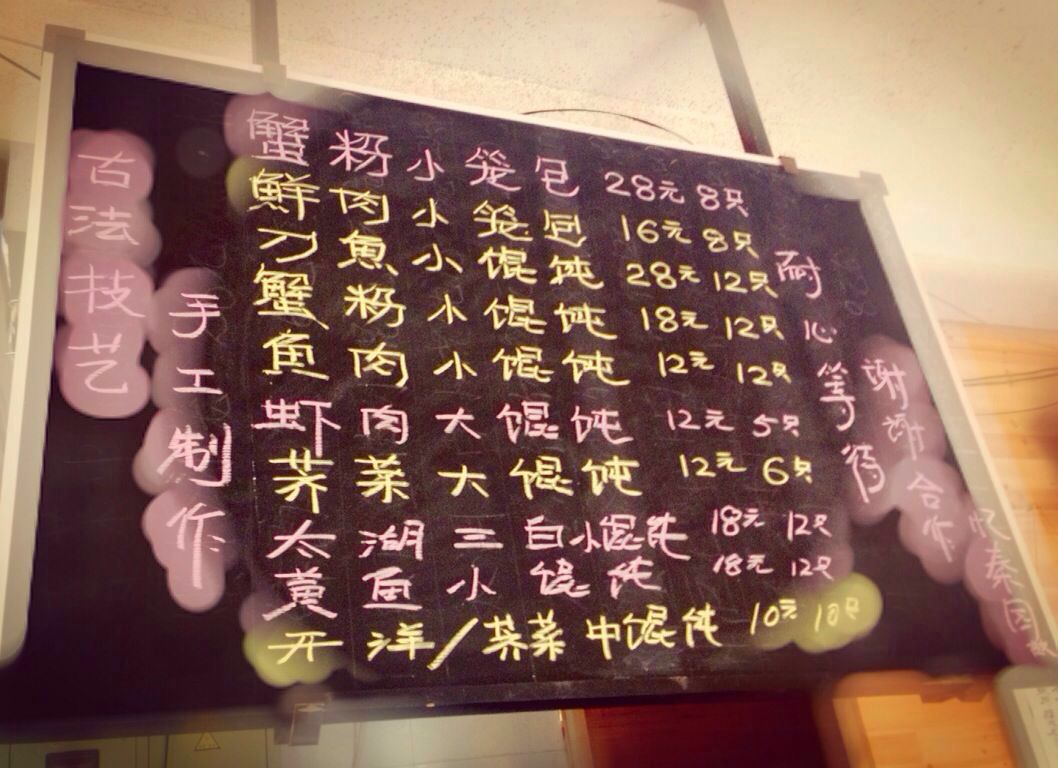 古法技艺
手工制作
蟹籾小笼包 28元 8只
鲜肉小笼包 16元 8只
刀魚小馄饨 28元 12只
蟹籾小馄饨 18元 12只
鱼肉小馄饨 12元 12只
虾肉大馄饨 12元 5只
荠菜大馄饨 12元 6只
太湖三白小馄饨 18元 12只
黄鱼小馄饨 18元 12只
开洋/荠菜中馄饨 10元 10只
耐心等待
谢谢合作
忆秦园